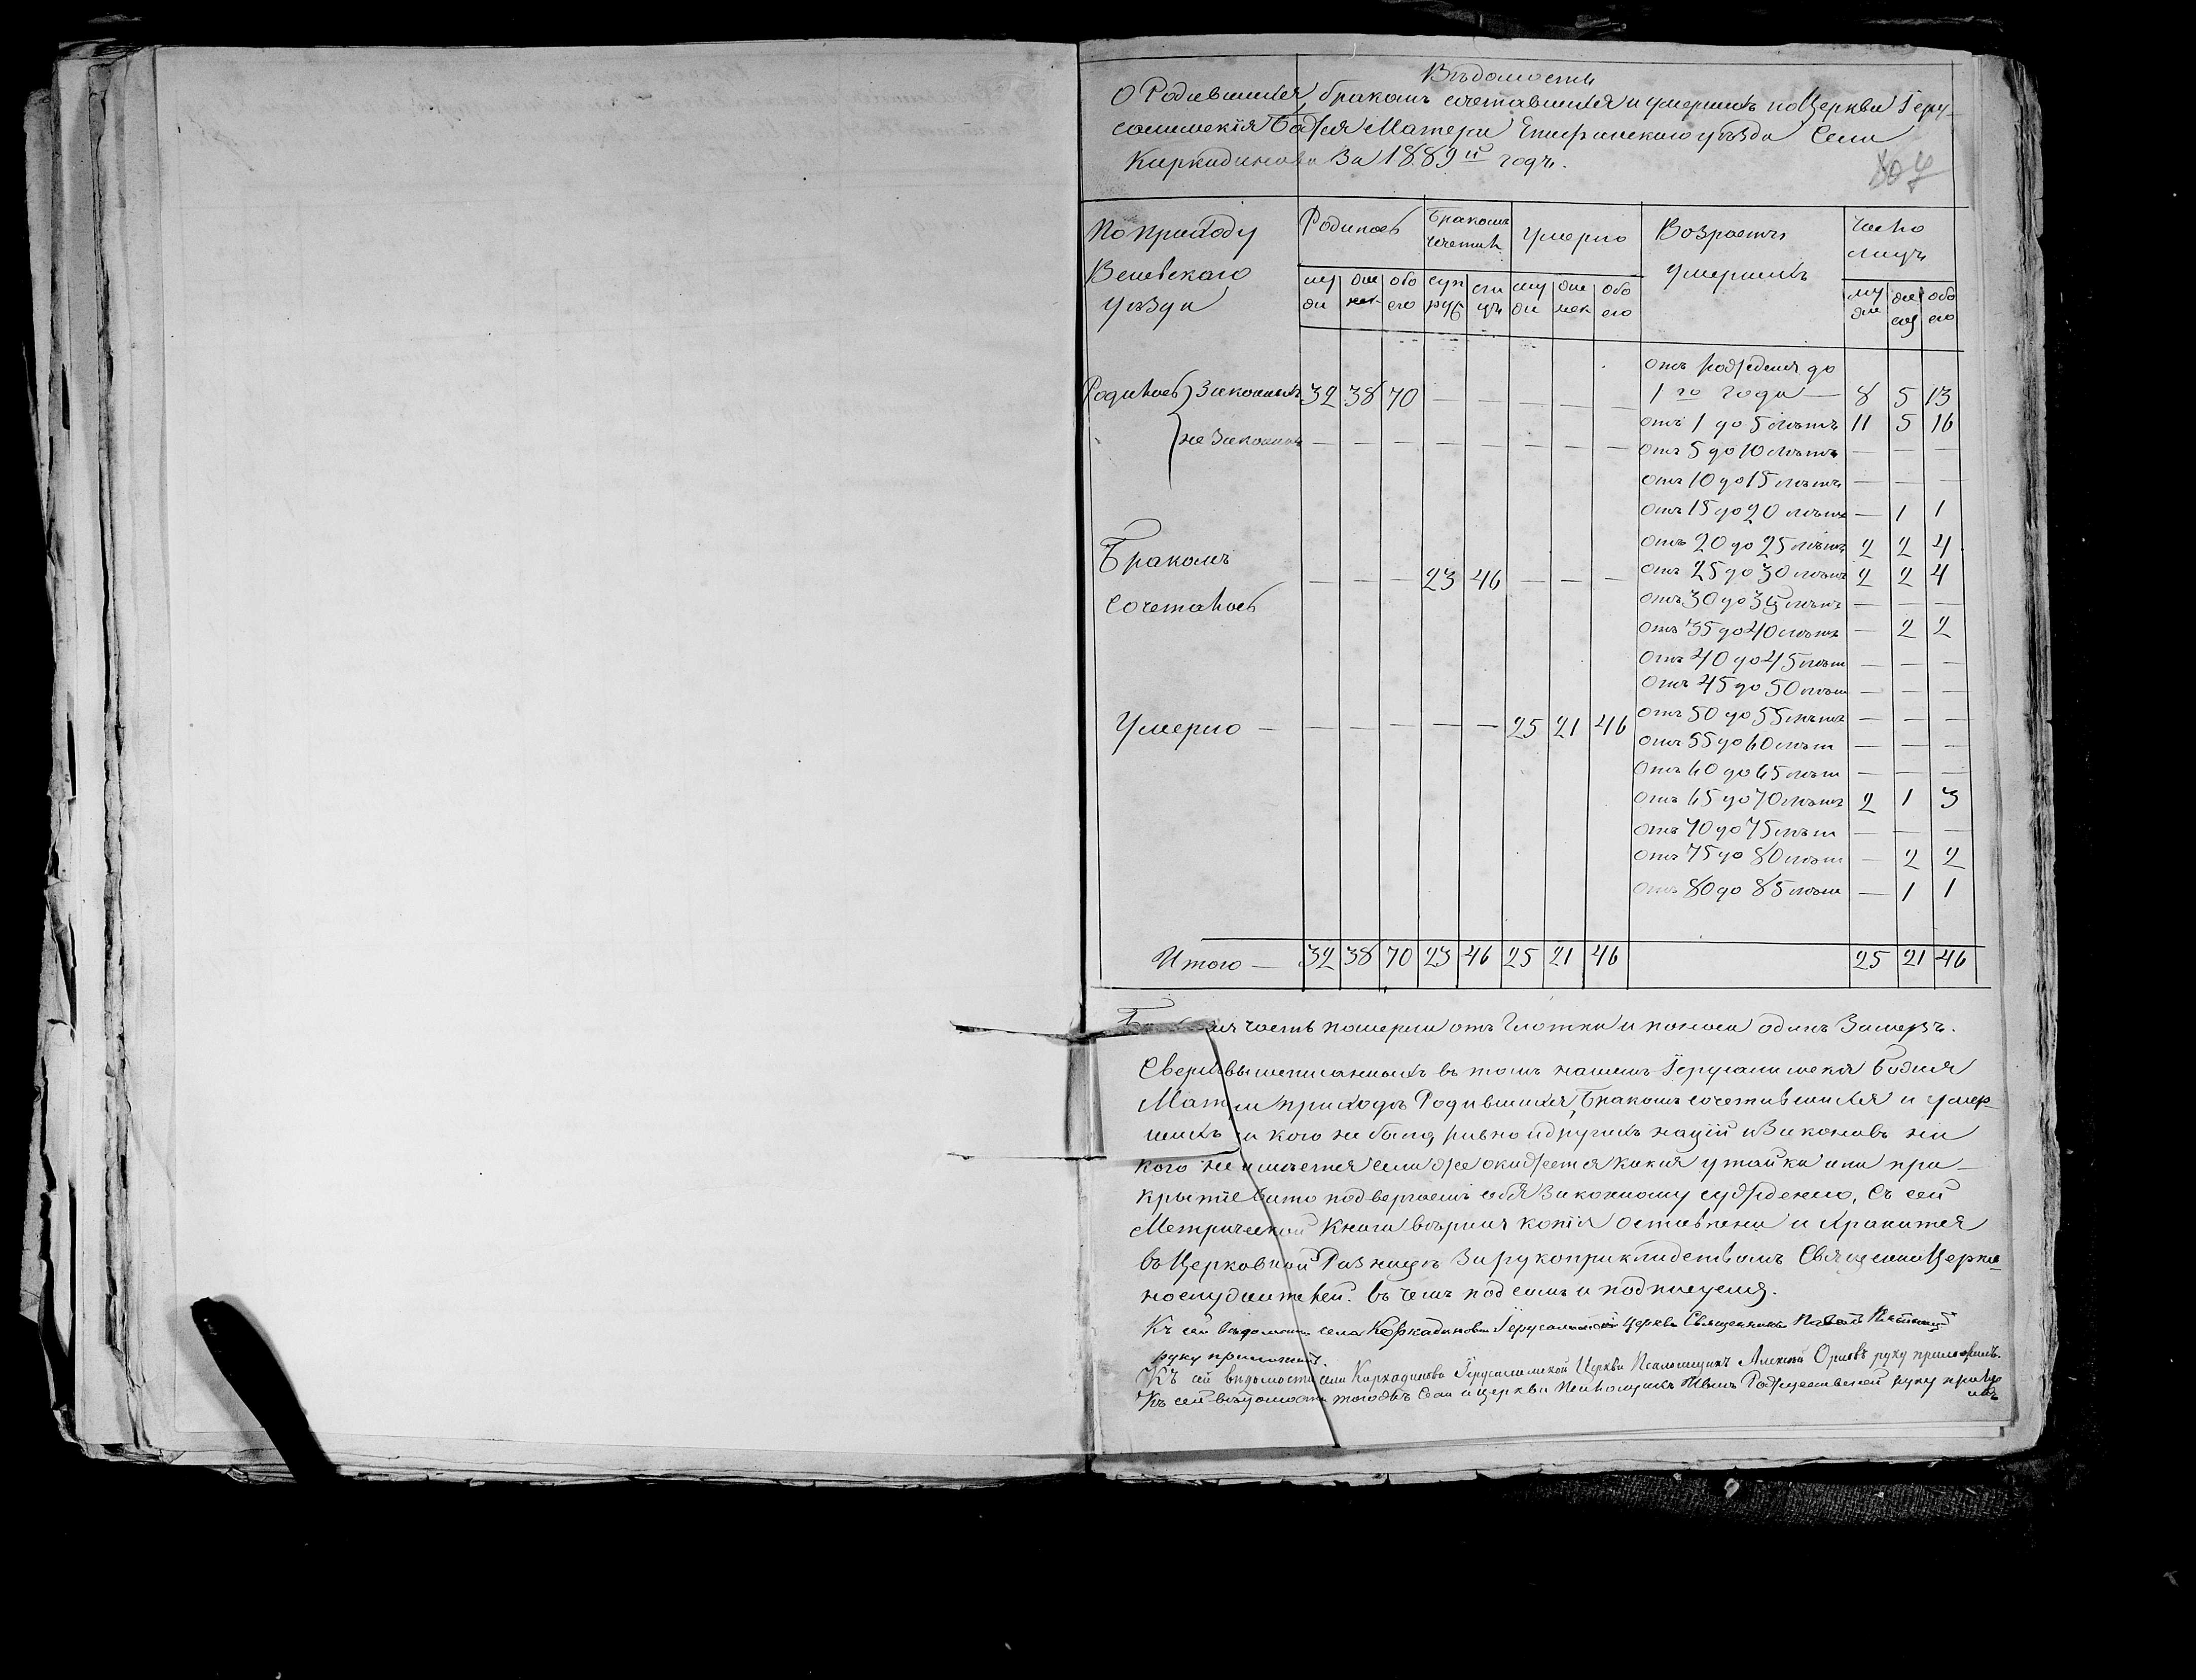 Вѣдомость
О Родившихся, бракомъ сочетавшихся и умершихъ по Церкви Іеру-
салимскія Божія Матери Епифанскаго уѣзда Села
Каркадинова За 1889й годъ.
По приходу Веневскаго уѣзда | Родилось | Бракомъ сочетал | Умерло | Возрастъ умершихъ | Число лицъ
му жи | же нск | обо его | суп руг | ли цъ | му жи | же нск | обо его | му же | же | обо его
отъ рожденія до
Родилось } Законныхъ 32 38 70 — — — — — 1го года — 8 5 13
отъ 1 до 5 лѣтъ 11 5 16
не Законныхъ — — — — — — — — отъ 5 до 10 лѣтъ — — —
отъ 10 до 15 лѣтъ — — —
отъ 15 до 20 лѣтъ — 1 1
отъ 20 до 25 лѣтъ 2 2 4
Бракомъ
— — — 23 46 — — — отъ 25 до 30 лѣтъ 2 2 4
Сочеталось отъ 30 до 35 лѣтъ — — —
отъ 35 до 40 лѣтъ — 2 2
отъ 40 до 45 лѣт — — —
отъ 45 до 50 лѣт — — —
Умерло — — — — — — 25 21 46 отъ 50 до 55 лѣтъ — — —
отъ 55 до 60 лѣт — — —
отъ 60 до 65 лѣт — — —
отъ 65 до 70 лѣтъ 2 1 3
отъ 70 до 75 лѣт — — —
отъ 75 до 80 лѣт — 2 2
отъ 80 до 85 лѣт — 1 1
Итого — 32 38 70 23 46 25 21 46 25 21 46
часть померли отъ Глотки и поноса одинъ Замерзъ.
Сверхъ вышеписанныхъ въ томъ нашемъ Іерусалимскія Божія
Матери приходѣ Родившихся, Бракомъ сочетавшихся и умер-
шихъ ни кого не было, равно и другихъ націй и Законовъ ни
кого не имѣется если же окажется какая утайка или при-
крытіе за то подвергаемъ себя Законному сужденію. Съ сей
Метрической Книги вѣрная копія оставлена и хранится
въ Церковной Ризницѣ За рукоприкладствомъ СвященноЦерков-
нослужителей. въ чемъ подъ симъ и подписуемся.
Къ сей вѣдомости села Коркадинова Іерусалимской церкви Священникъ Павелъ
руку приложилъ.
Къ сей вѣдомости села Каркадинова Іерусалимской Церкви Псаломщикъ Алексѣй Орловъ руку приложилъ.
Къ сей вѣдомости тогожъ Села и церкви Псаломщикъ Иванъ Рождественскій руку прило
жилъ